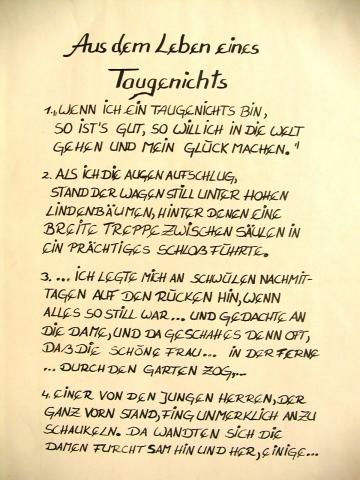 Aus dem Leben eines
Taugenichts
1. „WENN ICH EIN TAUGENICHTS BIN,
SO IST'S GUT, SO WILL ICH IN DIE WELT
GEHEN UND MEIN GLÜCK MACHEN."
2. ALS ICH DIE AUGEN AUFSCHLUG,
STAND DER WAGEN STILL UNTER HOHEN
LINDENBÄUMEN, HINTER DENEN EINE
BREITE TREPPE ZWISCHEN SÄULEN IN
EIN PRÄCHTIGES SCHLOß FÜHRTE.
3. ... ICH LEGTE MICH AN SCHWÜLEN NACHMIT-
TAGEN AUF DEN RÜCKEN HIN, WENN
ALLES SO STILL WAR ... UND GEDACHTE AN
DIE DAME, UND DA GESCHAH ES DENN OFT,
DAß DIE SCHÖNE FRAU ... IN DER FERNE
... DURCH DEN GARTEN ZOG,...
4. EINER VON DEN JUNGEN HERREN, DER
GANZ VORN STAND, FING UNMERKLICH AN ZU
SCHAUKELN. DA WANDTEN SICH DIE
DAMEN FURCHTSAM HIN UND HER, EINIGE...